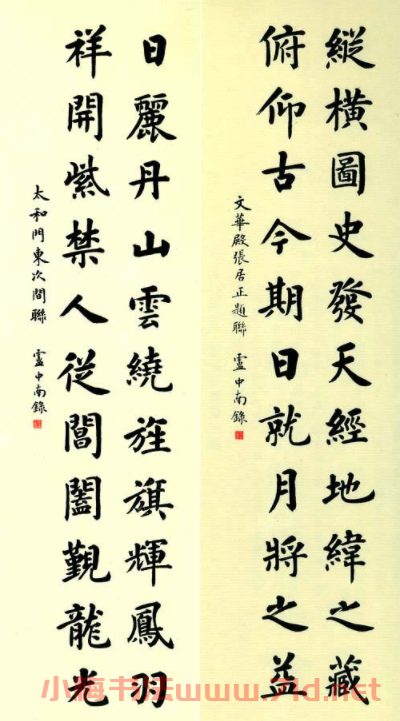 縱橫圖史發天經地緯之藏
俯仰古今期日就月將之益
文華殿張居正題聯 盧中南錄
日麗丹山雲繞旌旗輝鳳羽
祥開紫禁人從閶闔覲龍光
太和門東次間聯 盧中南錄
小梅书法www.71d.net